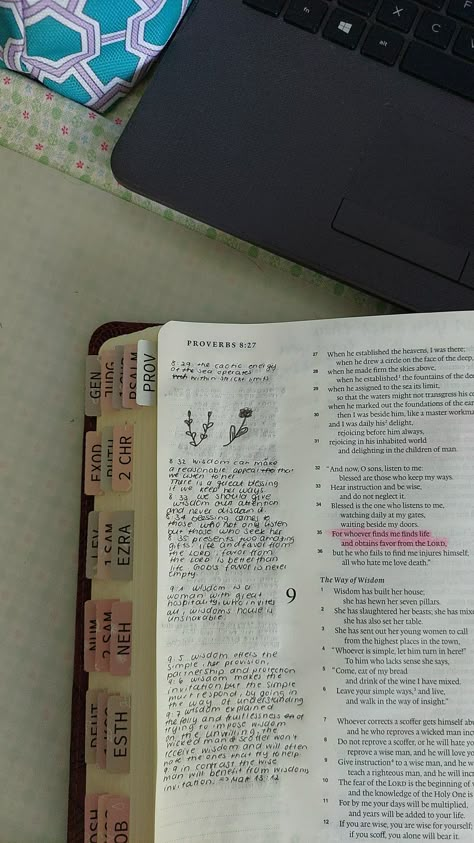 fn
alt
X
C
F
PROVERBS 8:27
GEN
JUDG
PSALM
PROV
EXOD
RUTH
2 CHR
LEV
1 SAM
EZRA
NUM
2 SAM
NEH
DEUT
ESTH
OSH
OB
8:29 the caotic energy
of the sea operates
within strict limits
8:32 wisdom can make
a reasonable appeal that
we listen to her
There is a great blessing
if we keep her ways
8:33 we should give
wisdom our attention
and never disdain it
8:34 blessing come to
those who not only listen
but those who seek her
8:35 presents two amazing
gifts: life and favor from
the LORD; favor from
the LORD is better than
life. God's favor is never
empty.
9:1 wisdom is a
woman with great
hospitality, who invites
all, wisdoms house is
unshakable.
9:5 wisdom offers the
simple: her provision,
partnership and protection
9:6 wisdom makes the
invitation but the simple
must respond, by going in
the way of understanding
9:7 wisdom explained
the folly and fruitlessness of
trying to impose wisdom
on the unwilling. the
wicked man & scoffer won't
receive wisdom and will often
hate the ones that try to help
9:9 in contrast the wise
man will benefit from wisdoms
invitation. Mat 13:12
27 When he established the heavens, I was there;
when he drew a circle on the face of the deep,
28 when he made firm the skies above,
when he established the fountains of the
29 when he assigned to the sea its limit,
so that the waters might not transgress his
when he marked out the foundations of the
30 then I was beside him, like a master
and I was daily his delight,
rejoicing before him always,
31 rejoicing in his inhabited world
and delighting in the children of man.
32 "And now, O sons, listen to me:
blessed are those who keep my ways.
33 Hear instruction and be wise,
and do not neglect it.
34 Blessed is the one who listens to me,
watching daily at my gates,
waiting beside my doors.
35 For whoever finds me finds life
and obtains favor from the LORD,
36 but he who fails to find me injures himself;
all who hate me love death."
The Way of Wisdom
9
1 Wisdom has built her house;
she has hewn her seven pillars.
2 She has slaughtered her beasts; she has
she has also set her table.
3 She has sent out her young women to call
from the highest places in the town,
4 "Whoever is simple, let him turn in here!"
To him who lacks sense she says,
5 "Come, eat of my bread
and drink of the wine I have mixed.
6 Leave your simple ways, and live,
and walk in the way of insight."
7 Whoever corrects a scoffer gets himself
and he who reproves a wicked man
8 Do not reprove a scoffer, or he will hate
reprove a wise man, and he will love
9 Give instruction to a wise man, and he will
teach a righteous man, and he will
10 The fear of the LORD is the beginning of
and the knowledge of the Holy One is
11 For by me your days will be multiplied,
and years will be added to your life.
12 If you are wise, you are wise for yourself;
if you scoff, you alone will bear it.